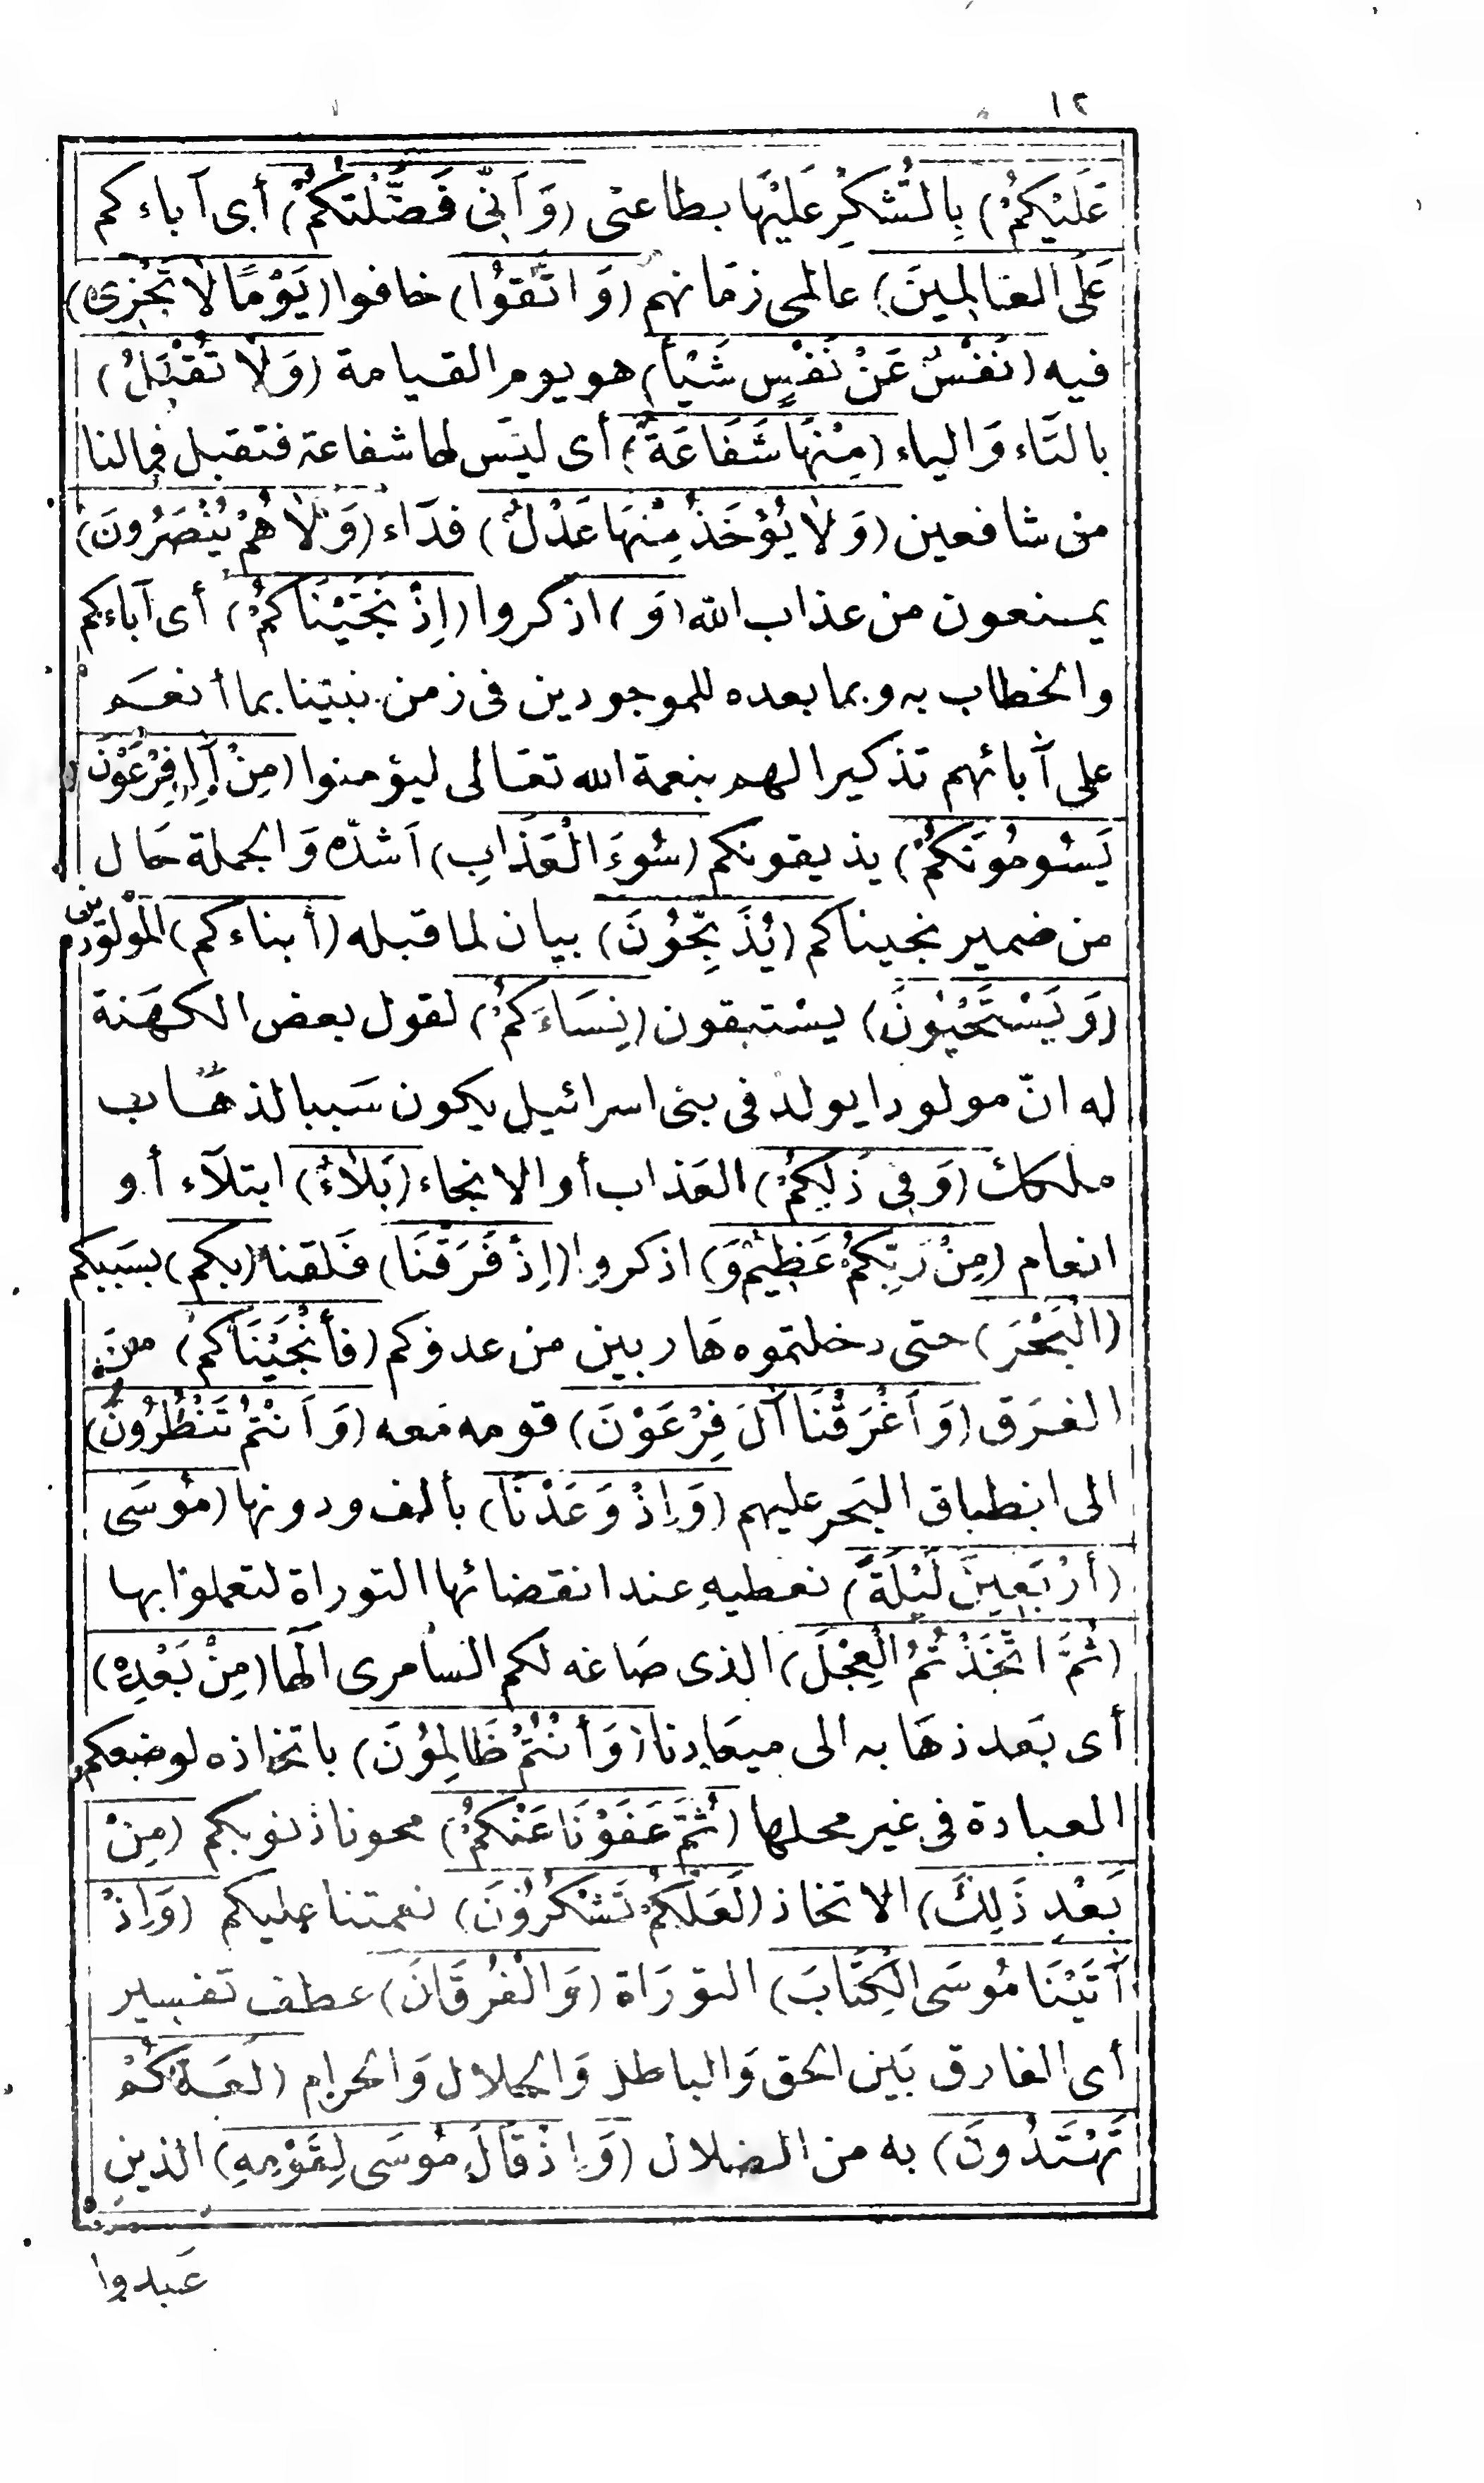 ١٢
عَلَيْكُمْ) بِالشُّكْرِ عَلَيْهَا بطاعتى (وَ اَنِّى فَضَّلْتُكُمْ) أى آباءكم
عَلَى الْعَالَمِينَ) عالمى زمَانهم (وَ اتَّقُوا) خافوا (يَوْمًا لَا تَجْزِى)
فيه (نَفْسٌ عَنْ نَفْسٍ شَيْأً) هو يوم القيامة (وَ لَا تُقْبَلُ)
بالتَاء وَالياء (مِنْهَا شَفَاعَةٌ) أى ليسَ لها شفاعة فتقبل فمالنا
من شافعين (وَ لَا يُؤْخَذُ مِنْهَا عَدْلٌ) فدَاء (وَ لَا هُمْ يُنْصَرُونَ)
يمنعون من عذاب الله (وَ) اذكروا (اِذْ نَجَّيْنَاكُمْ) أى آباءكم
والخطاب به وبما بعده للموجودين فى زمن نبينا بما أنعَم
على آبائهم تذكيرا لهم بنعمة الله تعَالى ليؤمنوا (مِنْ آلِ فِرْعَوْنَ
يَسُومُونَكُمْ) يذيقونكم (سُوءَ الْعَذَابِ) اَشدّه وَالجملة حَال
من ضمير نجيناكم (يُذَبِّحُونَ) بيان لما قبله (أبناءكم) المَوْلودين
(وَ يَسْتَحْيُونَ) يسْتبقون (نِسَاءَكُمْ) لقول بعض الكهَنة
له انّ مولودا يولد فى بنى اسرائيل يكون سَببا لذهَاب
ملكك (وَ فِى ذَلِكُمْ) العَذاب أو الانجاء (بَلَاءٌ) ابتلَاء أو
انعام (مِنْ رَبِّكُمْ عَظِيمٌ وَ) اذكروا (اِذْ فَرَقْنَا) فَلقنا (بكم) بسَببكم
(الْبَحْرَ) حتى دخلتموه هَاربين من عدوكم (فأنْجَيْنَاكم) منَ
الغرَق (وَ اَغْرَقْنَا آلَ فِرْعَوْنَ) قومه مَعه (وَ اَنْتُمْ تَنْظُرُونَ)
الى انطباق البَحر عليهم (وَ اِذْ وَعَدْنَا) بألف ودونها (مُوسَى
(أرْبَعِينَ لَيْلَةً) نعطيهِ عند انقضائها التوراة لتعملوا بها
(ثُمَّ اتَّخَذْتُمُ الْعِجْلَ) الذى صَاغه لكم السَامرى الَها (مِنْ بَعْدِهِ)
أى بَعد ذهَابه الى ميعَادنا (وَ أنْتُمْ ظَالِمُونَ) باتخاذه لوضعكم
العبادة فى غير محلها (ثُمَّ عَفَوْنَا عَنْكُمْ) محونا ذنوبكم (مِنْ
بَعْدِ ذَلِكَ) الاتخاذ (لَعَلَّكُمْ تَشْكُرُونَ) نعمتنا عليكم (وَ اِذْ
آتَيْنَا مُوسَى الْكِتَابَ) التورَاة (وَ الْفُرْقَانَ) عطف تفسير
أى الفارق بَين الحق وَالباطل وَالحلال وَالحرام (لَعَلَّكُمْ
تَهْتَدُونَ) به من الضلال (وَ اِذْ قَالَ مُوسَى لِقَوْمِهِ) الذين
عَبدوا